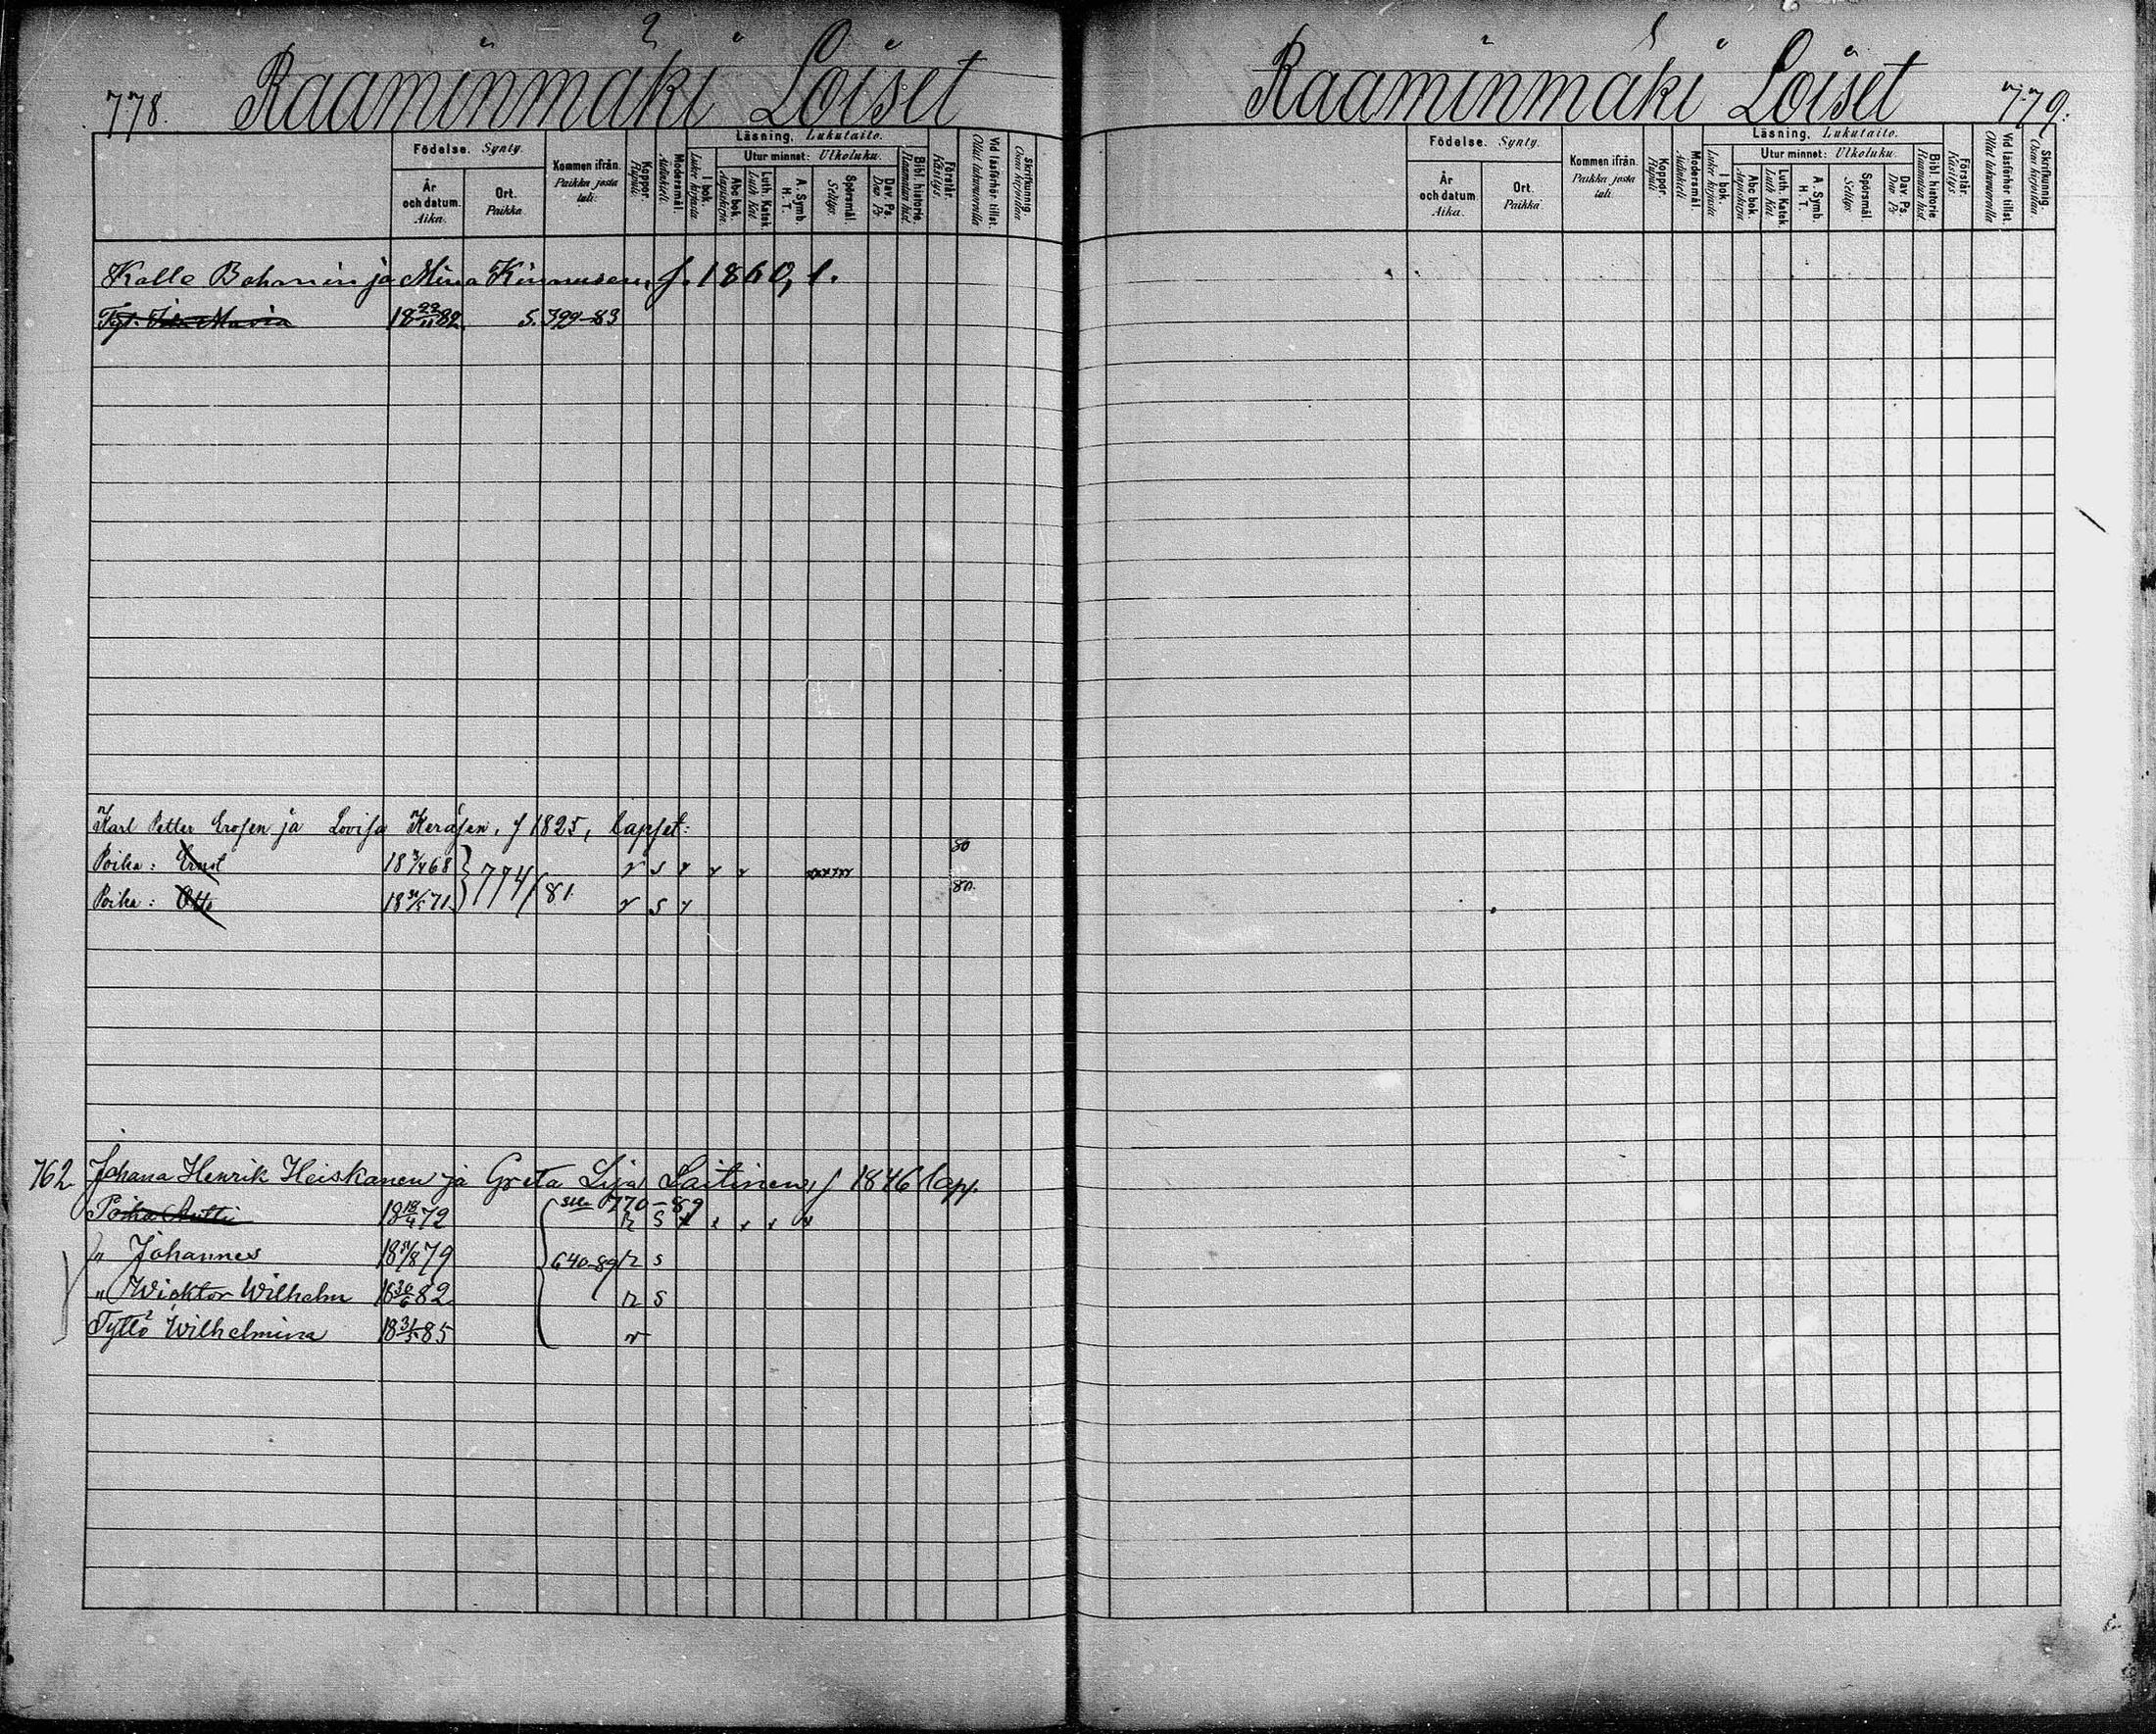 778. Raaminmäki Loiset
Läsning. Lukutaito.
Födelse. Synty.
Utur minnet: Ulkoluku.
År och datum. Aika.
Ort. Paikka
Kommen ifrån. Paikka josta tuli.
Koppor. Rupuli
Modersmål. Äidinkieli.
I bok. Lukee kirjasta
Abc bok. Aapiskirja.
Luth. Katek. Luth. Kat.
A. Symb. H. T.
Spörsmål. Selitys.
Dav. Ps. Dav. Ps
Bibl. historie. Raamatun hist.
Förstår. Käsitys.
Vid läsförhör. tillst. Ollut lukuvuorolla
Skrifkunnig. Osaa kirjoittaa
Kalle Bohmin ja Mina Kinnunen, f. 1860, l.
Tyt. Maria 18 22/11 82 S. 399-83
Karl Petter Erosen ja Lovisa Keräsen, f 1825, lapset:
80
Poika: Ernst 18 /4 68 774/81. r s r r r
80.
Poika: Otto 18 /5 71. r s r
762 Johana Henrik Heiskanen ja Greta Lija Laitinen, f 1846 lapp.
770-89
Poika Antti 18 18/4 72 r s
" Johannes 18 /8 79 640-89 r s
" Wicktor Wilhelm 18 30/6 82 r s
Tyttö Wilhelmina 18 31/5 85 r
Raaminmäki Loiset 779.
Läsning. Lukutaito.
Födelse. Synty.
Utur minnet: Ulkoluku.
År och datum Aika.
Ort. Paikka
Kommen ifrån. Paikka josta tuli.
Koppor. Rupuli
Modersmål. Äidinkieli
I bok. Lukee kirjasta
Abc bok. Aapiskirja
Luth. Katek. Luth. Kat
A. Symb. H. T.
Spörsmål. Selitys
Dav. Ps. Dav. Ps
Bibl. historie Raamatun hist.
Förstår. Käsitys.
Vid läsförhör. tillst. Ollut lukuvuorolla
Skrifkunnig. Osaa kirjoittaa